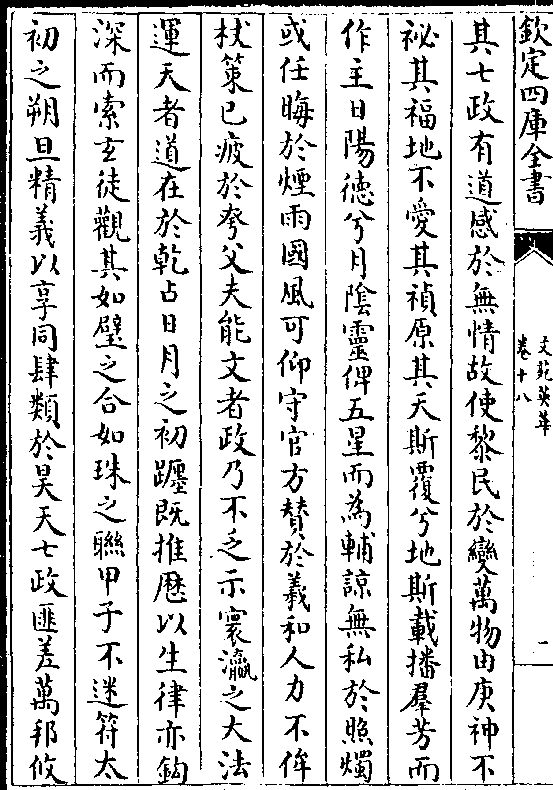 欽定四庫全書
文苑英華
卷十八
一
其七政有道感於無情故使黎民於變萬物由庚神不
祕其福地不愛其禎原其天斯覆兮地斯載播羣芳而
作主日陽德兮月陰靈俾五星而為輔諒無私於照燭
或任晦於煙雨國風可仰守官方賛於羲和人力不侔
杖策已疲於夸父夫能文者政乃不乏示寰瀛之大法
運天者道在於乾占日月之初躔既推厯以生律亦鈎
深而索𤣥徒觀其如璧之合如珠之聯甲子不迷符太
初之朔旦精義以享同肆類於昊天七政匪差萬邦攸